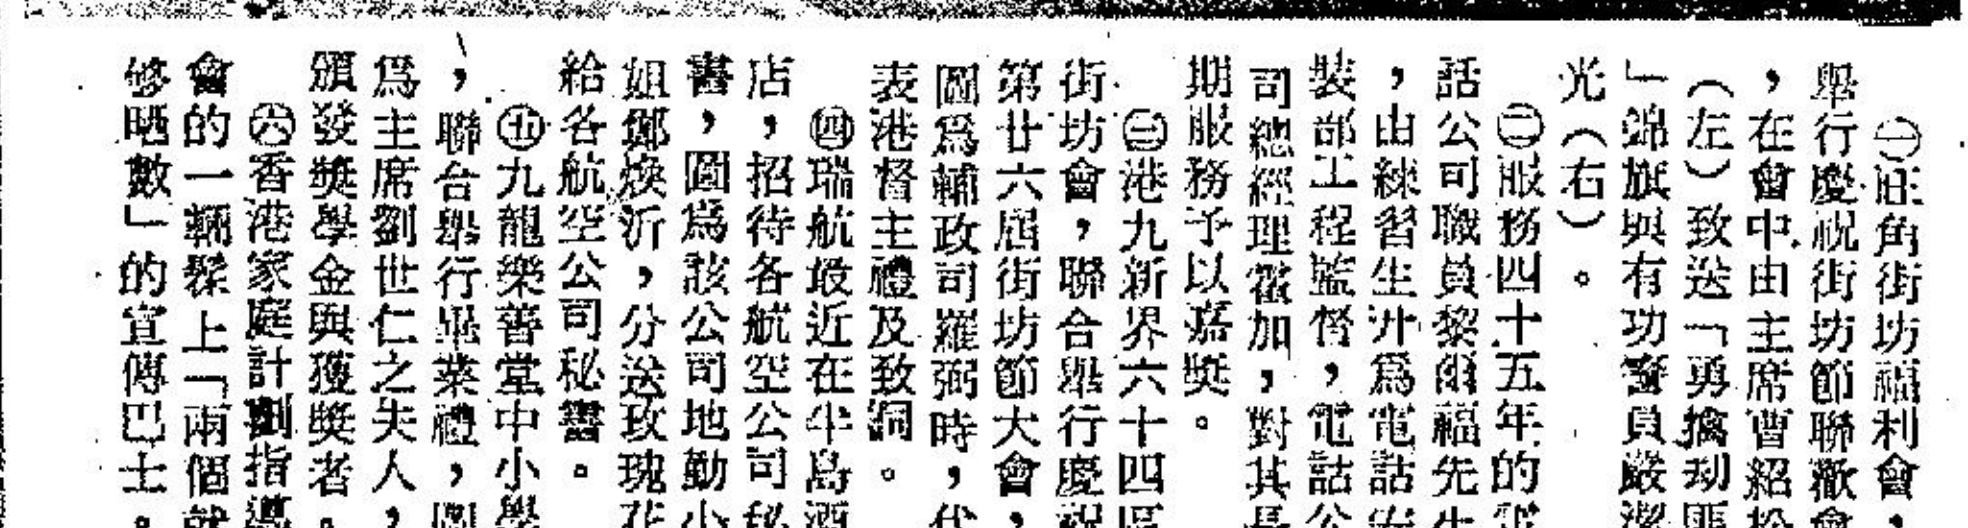 ㊀旺角街坊福利會，
舉行慶祝街坊節聯歡會
，在會中由主席曹紹松
（左）致送「勇擒刧匪
」錦旗與有功警員嚴潔
光（右）。
㊁服務四十五年的電
話公司職員黎爾福先生
，由練習生升爲電話安
裝部工程監督，電話公
司總經理霍加，對其長
期服務予以嘉獎。
㊂港九新界六十四區
街坊會，聯合舉行慶祝
第廿六屆街坊節大會，
圖爲輔政司羅弼時，代
表港督主禮及致詞。
㊃瑞航最近在半島酒
店，招待各航空公司秘
書，圖爲該公司地勤小
姐鄭煥沂，分送玫瑰花
給各航空公司秘書。
㊄九龍樂善堂中小學
，聯合舉行畢業禮，圖
爲主席劉世仁之夫人，
頒發獎學金與獲獎者。
㊅香港家庭計劃指導
會的一輛髹上「兩個就
够晒數」的宣傳巴士。